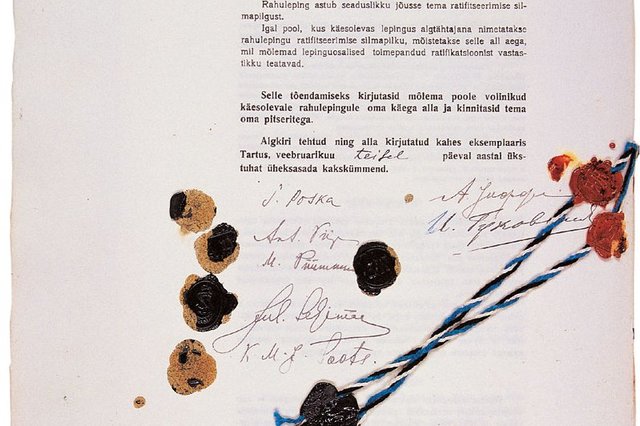 Rahuleping astub seaduslikku jõusse tema ratifitseerimise sil-
mapilgust.
Igal pool, kus käesolevas lepingus algtähtajana nimetatakse
rahulepingu ratifitseerimise silmapilku, mõistetakse selle all aega,
mil mõlemad lepinguosalised toimepandud ratifikatsioonist vastas-
tikku teatavad.
Selle tõendamiseks kirjutasid mõlema poole volinikud
käesolevale rahulepingule oma käega alla ja kinnitasid tema
oma pitseritega.
Algkiri tehtud ning alla kirjutatud kahes eksemplaaris
Tartus, veebruarikuu teisel päeval aastal üks-
tuhat üheksasada kakskümmend.
J. Poska
Ant. Piip
M. Püümann
Jul. Seljamaa
А. Иоффе
И. Гуковский